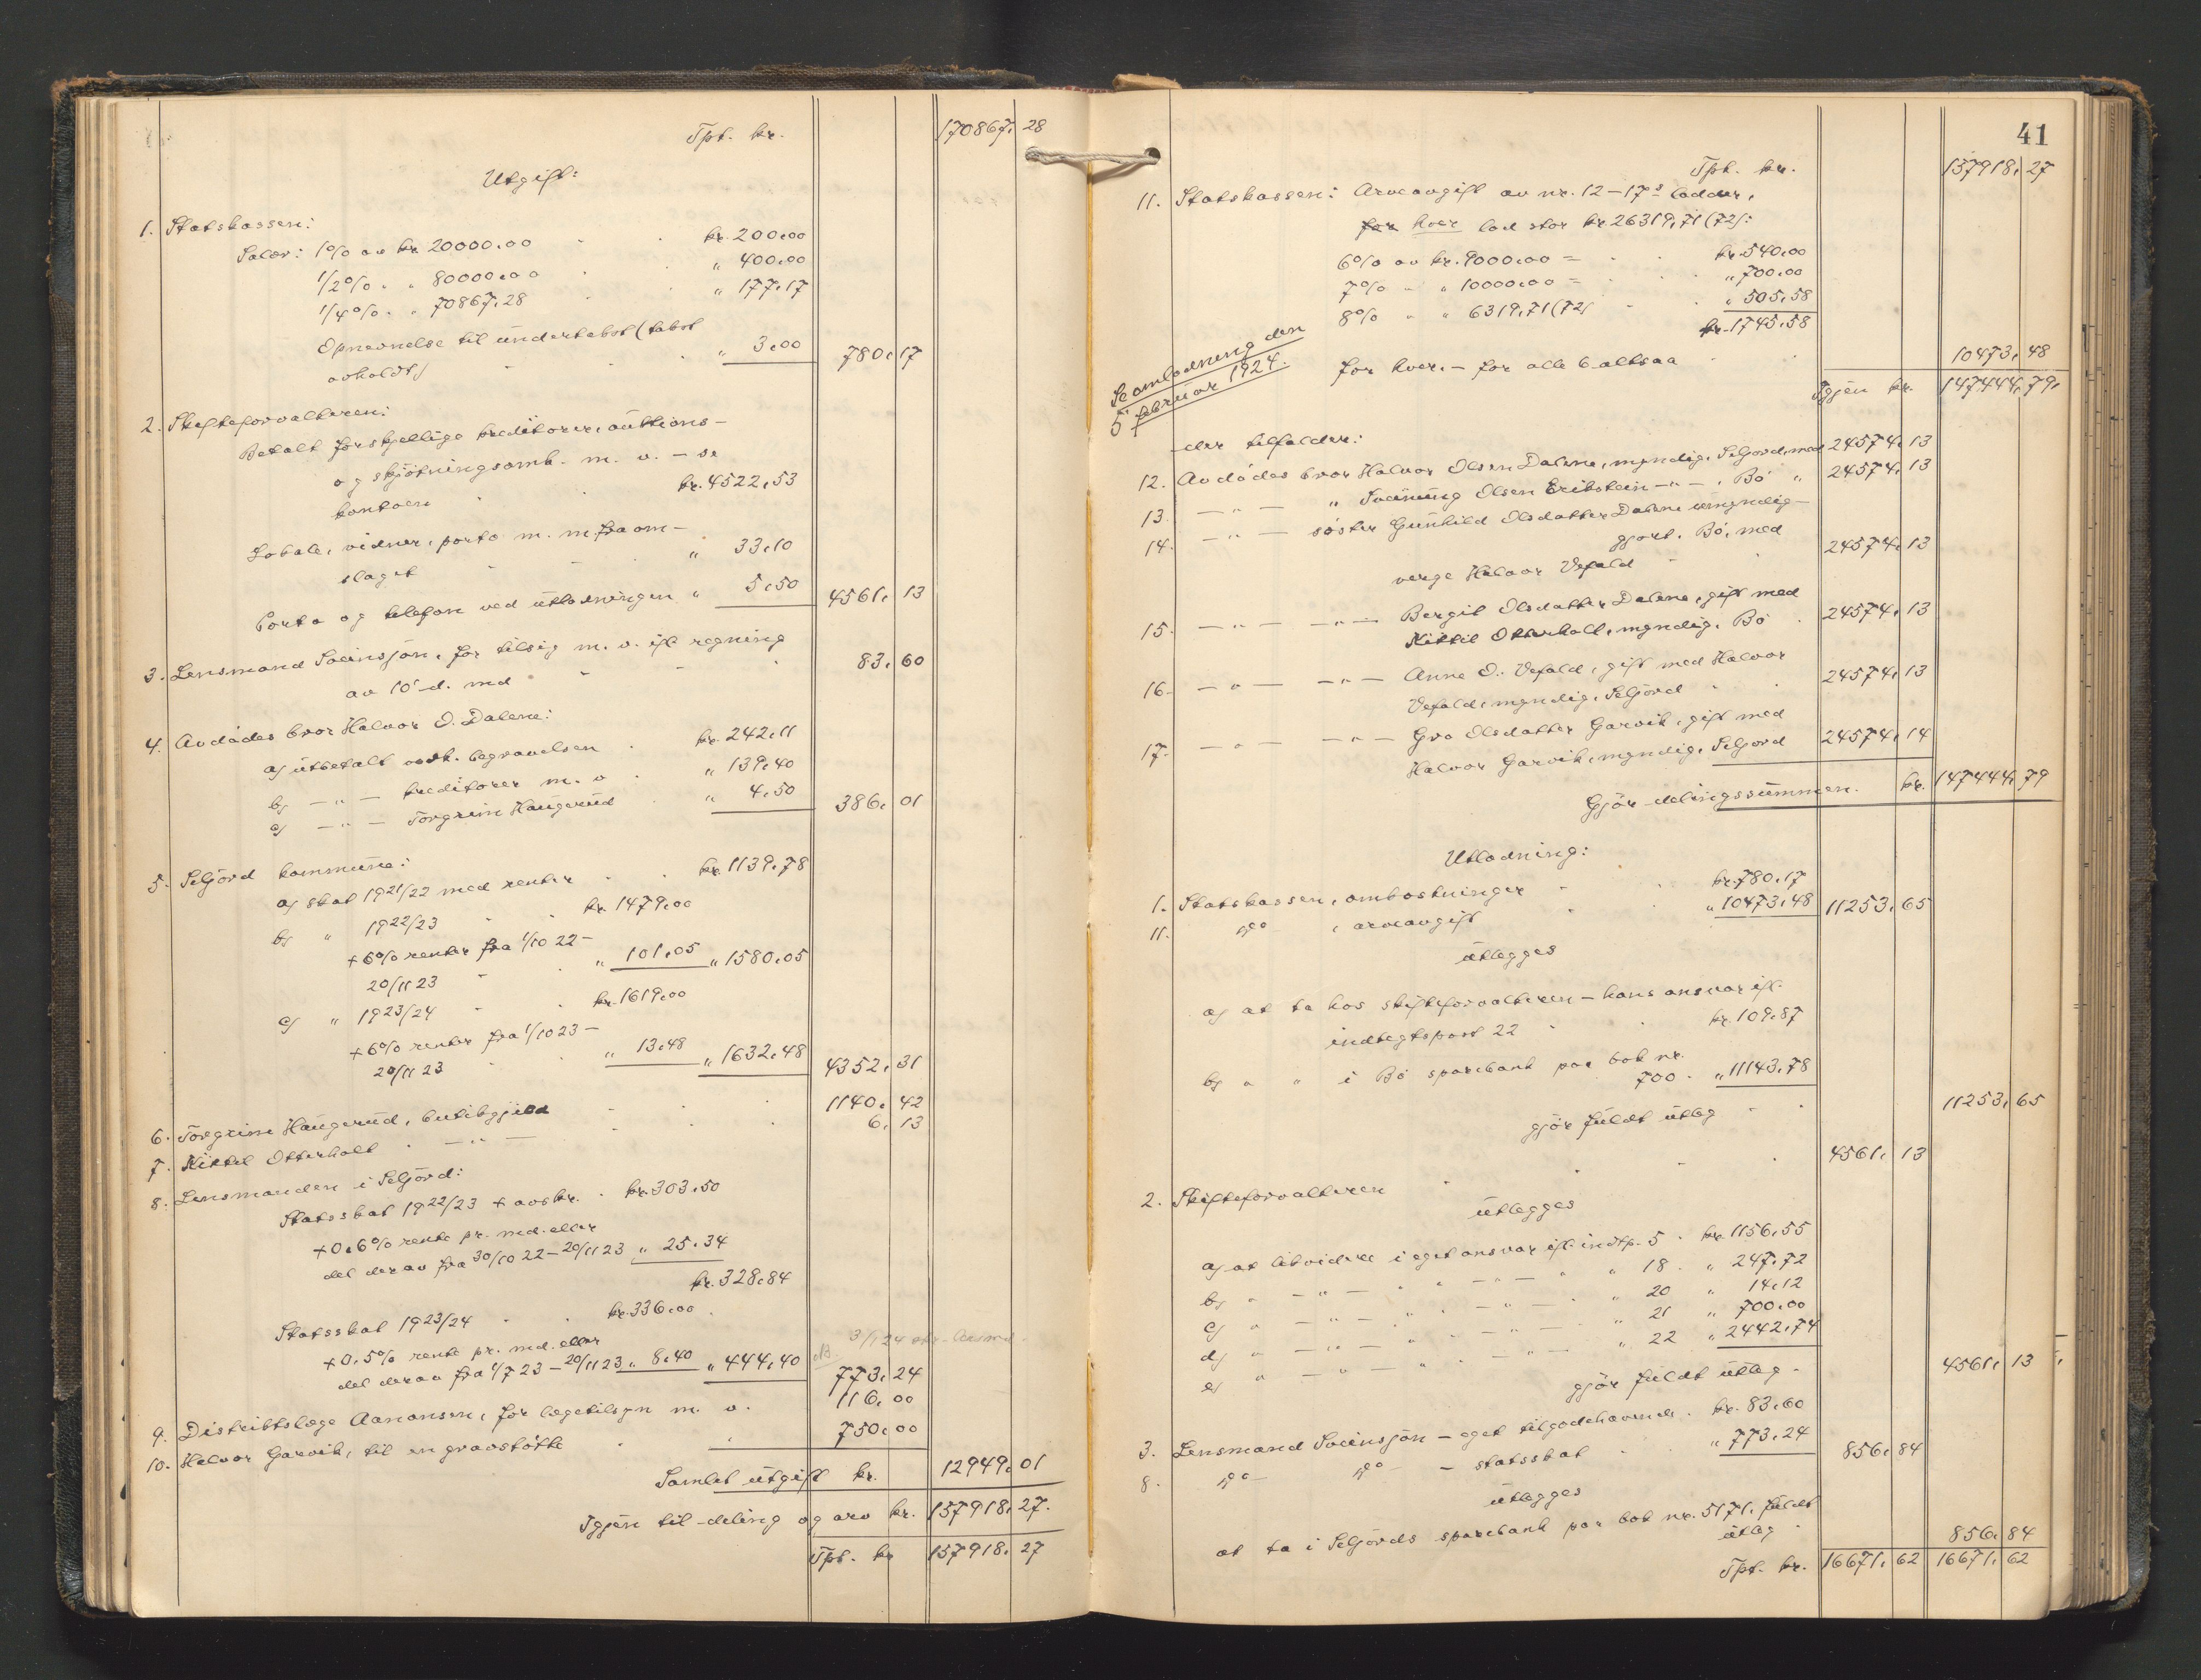 Tpt. kr. 170867, 28
Utgift:
1. Statskassen:
Salær: 1% av kr. 20000,00 kr. 200,00
1/2% " " 80000,00 " 400,00
1/4% " " 70867,28 " 177,17
Opnevnelse til undertakst (takst
avholdt) " 3,00 780, 17
2. Skifteforvalteren:
Betalt forskjellige kreditorer, auktions-
og skjötningsomk. m. v. - se
kontoen kr. 4522,53
Lokale, vidner, porto m. m. fra om-
slaget " 33,10
Porto og telefon ved utlodningen " 5,50 4561, 13
3. Lensmand Sveinsjøn, for tilsig m. v. ifl. regning
av 10' d. md 83, 60
4. Avdødes bror Halvor O. Dalene:
a) utbetalt vedk. begravelsen kr. 242,11
b) - " - kreditorer m. v. " 139,40
c) - " - Torgrim Haugerud " 4,50 386, 01
5. Seljord kommune:
a) skat 1921/22 med renter kr. 1139,78
b) " 1922/23 kr. 1479,00
+ 6% renter fra 1/10 22 -
20/11 23 " 101,05 " 1580,05
c) " 1923/24 kr. 1619,00
+ 6% renter fra 1/10 23 -
20/11 23 " 13,48 " 1632,48 4352, 31
6. Torgrim Haugerud, butikgjeld 1140, 42
7. Kittil Otterholt - " - 6, 13
8. Lensmanden i Seljord:
Statsskat 1922/23 + avskr. kr. 303,50
+ 0,6% rente pr. md. eller
del derav fra 30/10 22 - 20/11 23 " 25,34
kr. 328,84
Statsskat 1923/24 kr. 336,00
+ 0,5% rente pr. md. eller
del derav fra 1/7 23 - 20/11 23 " 8,40 " 444,40 773, 24
9. Distriktslæge Aanonsen, for lægetilsyn m. v. 116, 00
10. Halvor Garvik, til en gravstøtte 750, 00
Samlet utgift kr. 12949, 01
Igjen til deling og arv kr. 157918, 27.
Tpt. kr 157918, 27
41
Tpt. kr. 157918, 27
11. Statskassen: Arveavgift av nr. 12-17s lodder,
for hver lod stor kr. 26319,71 (72):
6% av kr. 9000,00 = kr. 540,00
7% " " 10000,00 = " 700,00
8% " " 6319,71 (72) " 505,58
kr. 1745,58
for hver, - for alle 6 altsaa 10473, 48
Seomlodning den
5 februar 1924.
Igjen kr. 147444, 79,
der tilfalder:
12. Avdødes bror Halvor Olsen Dalene, myndig, Seljord, med 24574, 13
13. - " - " Sveinung Olsen Eribstein - " - , Bö " 24574, 13
14. - " - søster Gunhild Olsdatter Dalene umyndig-
gjort, Bö, med
verge Halvor Vefald 24574, 13
15. - " - - " - Bergit Olsdatter Dalene, gift med
Kittil Otterholt, myndig, Bö 24574, 13
16. - " - - " - Anne O. Vefald, gift med Halvor
Vefald, myndig, Seljord 24574, 13
17. - " - - " - Gro Olsdatter Garvik, gift med
Halvor Garvik, myndig, Seljord 24574, 14
Gjør delingssummen. kr. 147444, 79
Utlodning:
1. Statskassen, omkostninger kr. 780,17
11. do , arveavgift " 10473,48 11253, 65
utlegges
a) at ta hos skifteforvalteren - hans ansvar ifl.
indtegtspost 22 kr. 109,87
b) " " i Bö sparebank paa bok nr.
700 " 11143,78
gjør fuldt utleg 11253, 65
2. Skifteforvalteren 4561, 13
utlegges
a) at likvidere i eget ansvar ifl. indtp. 5 kr. 1156,55
b) " - " - " - " - " 18 " 247,72
c) " - " - " - " - " 20 " 14,12
d) " - " - " - " - " 21 " 700,00
e) " - " - " - " - " 22 " 2442,74
gjør fuldt utleg 4561, 13
3. Lensmand Sveinsjøn - eget tilgodehavende kr. 83,60
8. do do - statsskat " 773,24 856, 84
utlegges
at ta i Seljords sparebank paa bok nr. 5171, fuldt
utleg 856, 84
Tpt. kr. 16671, 62 16671, 62